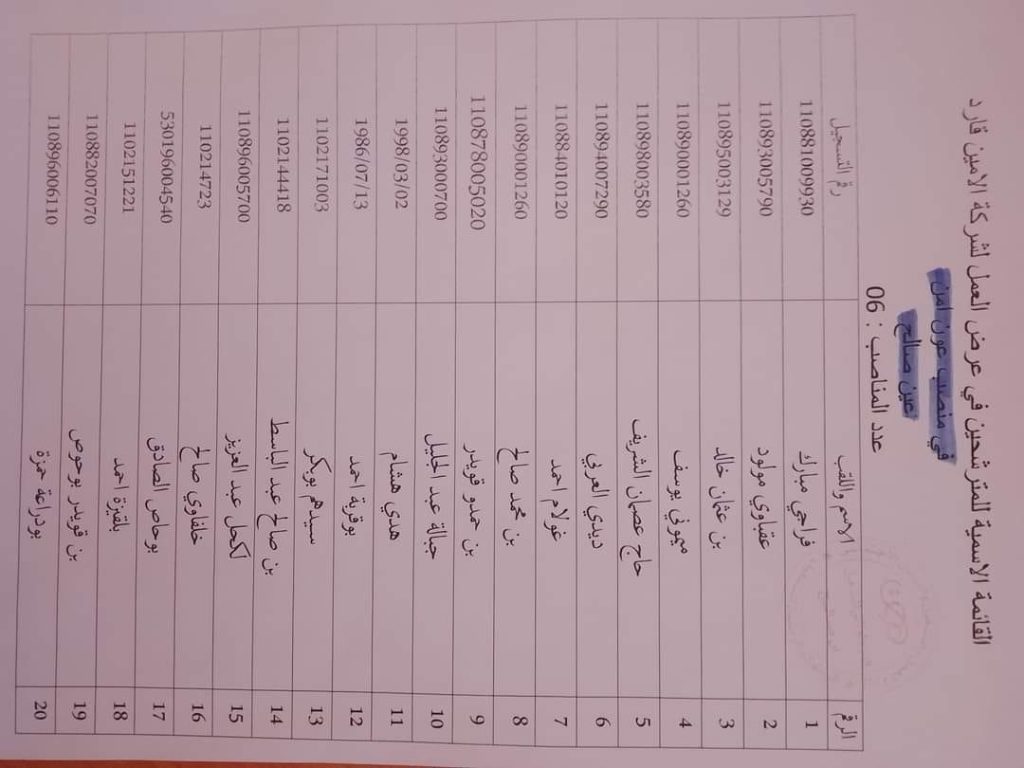 القائمة الاسمية للمترشحين في عرض العمل لشركة الامين قارد
في منصب عون امن
عين صالح
عدد المناصب : 06
الرقم الاسم واللقب رقم التسجيل
1 فراجي مبارك 110881009930
2 عقباوي مولود 110893005790
3 بن عثمان خالد 110895003129
4 ميموني يوسف 110890001260
5 حاج عصمان الشريف 110898003580
6 ديدي العربي 110894007290
7 غولام احمد 110884010120
8 بن محمد صالح 110890001260
9 بن حمدو قويدر 110878005020
10 جبالة عبد الجليل 110893000700
11 هدي هشام 1998/03/02
12 بوقرية احمد 1986/07/13
13 سيدهم بوبكر 1102171003
14 بن صالح عبد الباسط 1102144418
15 لكحل عبد العزيز 110896005700
16 خلفاوي صالح 110214723
17 بوحاص الصادق 530196004540
18 بلقيزة احمد 1102151221
19 بن قويدر بوحوص 110882007070
20 بودراعة حمزة 110896006110